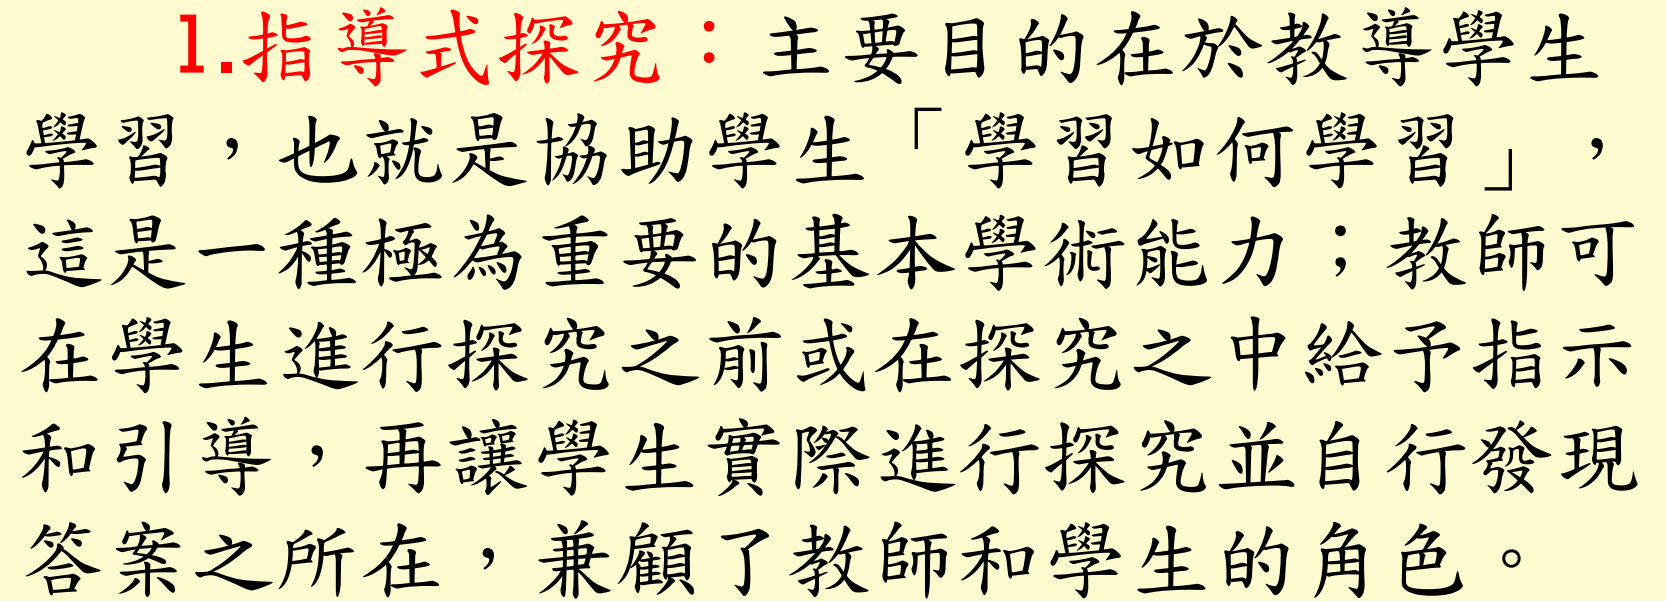 1.指導式探究：主要目的在於教導學生
學習，也就是協助學生「學習如何學習」，
這是一種極為重要的基本學術能力；教師可
在學生進行探究之前或在探究之中給予指示
和引導，再讓學生實際進行探究並自行發現
答案之所在，兼顧了教師和學生的角色。